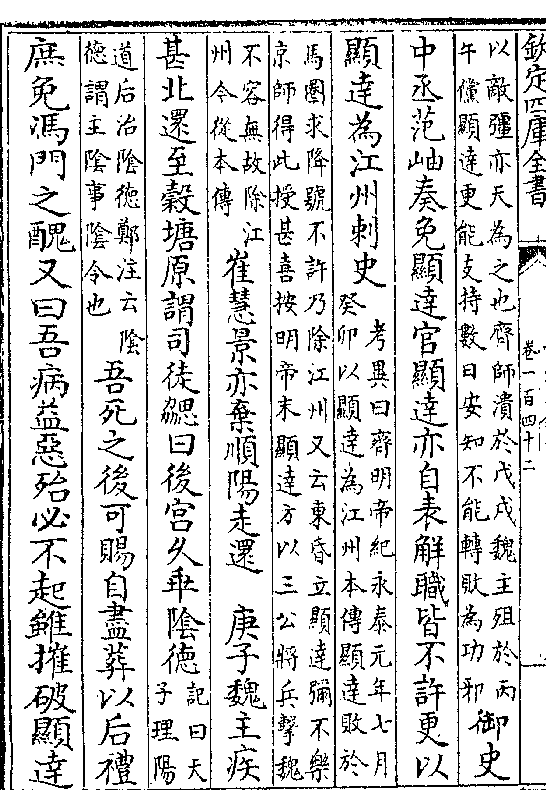 欽定四庫全書 卷一百四十二
以敵彊亦天為之也齊師潰於戊戌魏主殂於丙
午儻顯達更能支持數日安知不能轉敗為功邪
御史
中丞范岫奏免顯達官顯達亦自表解職皆不許更以
顯達為江州刺史
考異曰齊明帝紀永泰元年七月
癸卯以顯達為江州本傳顯達敗於
馬圏求降號不許乃除江州又云東昏立顯達彌不樂
京師得此授甚喜按明帝末顯達方以三公將兵擊魏
不容無故除江
州今從本傳
崔慧景亦棄順陽走還 庚子魏主疾
甚北還至穀塘原謂司徒勰曰後宮久乖陰德
記曰天
子理陽
道后治陰德鄭注云陰
德謂主陰事陰令也
吾死之後可賜自盡葬以后禮
庶免馮門之醜又曰吾病益惡殆必不起雖摧破顯達